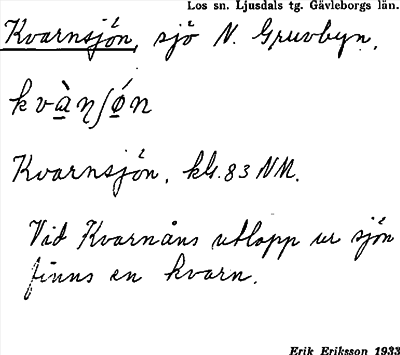 Los sn. Ljusdals tg. Gävleborgs län.
Kvarnsjön, sjö N. Gruvbyn.
kvàṇʃǿn
Kvarnsjön, kbl. 83 NM.
Vid Kvarnåns utlopp ur sjön
finns en kvarn.
Erik Eriksson 1933